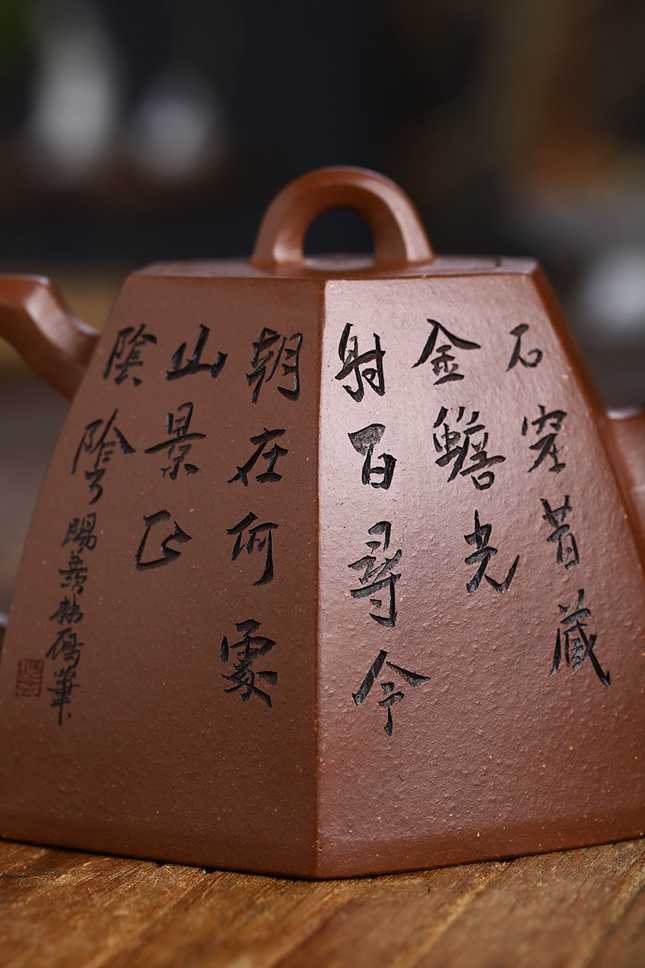 石室昔藏
金蟾光
射百尋今
朝在何處
山景正
陰
陰陽羨筆